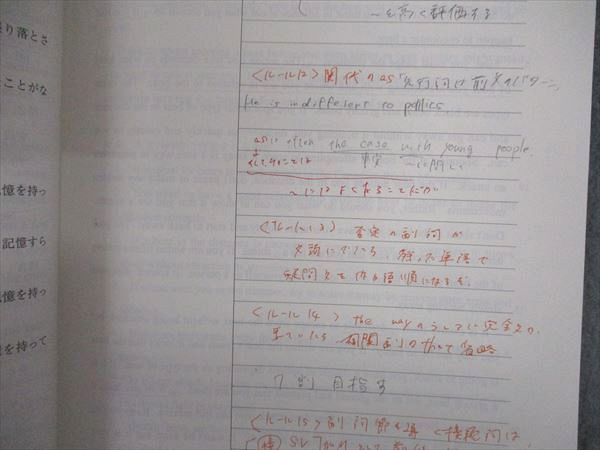 〜を高く評価する
り落とさ
ことがな
憶を持っ
記憶すら
憶を持っ
を持って
<ルール12> 関代のas「先行詞は前文のパターン」
He is indifferent to politics
as is often the case with young people
〜に関して
〜にはよくあることだが
<ルール13> 否定の副詞が
文頭にでたら、残った単語で
疑問文を作る語順になるぞ。
<ルール14> the wayのうしろに完全文が
きていたら、関副のthatの省略
7割目指す
<ルール15> 副詞節を導く接続詞は、